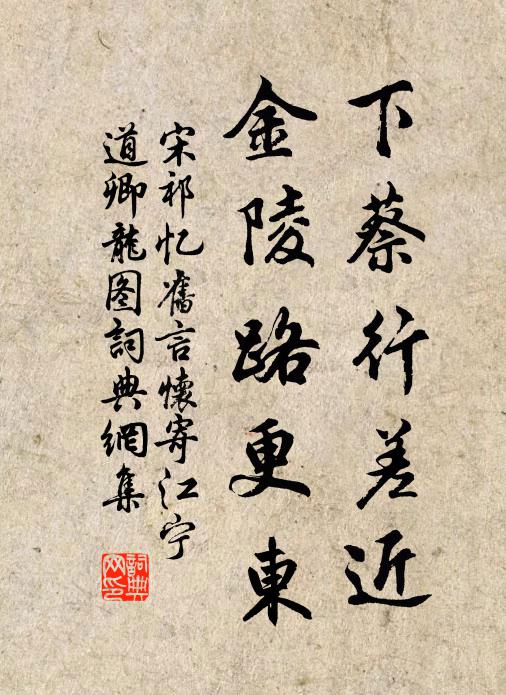 下蔡行差近
金陵路更東
宋祁忆舊言懷寄江宁
道卿龍图詞典網集
詞典网印